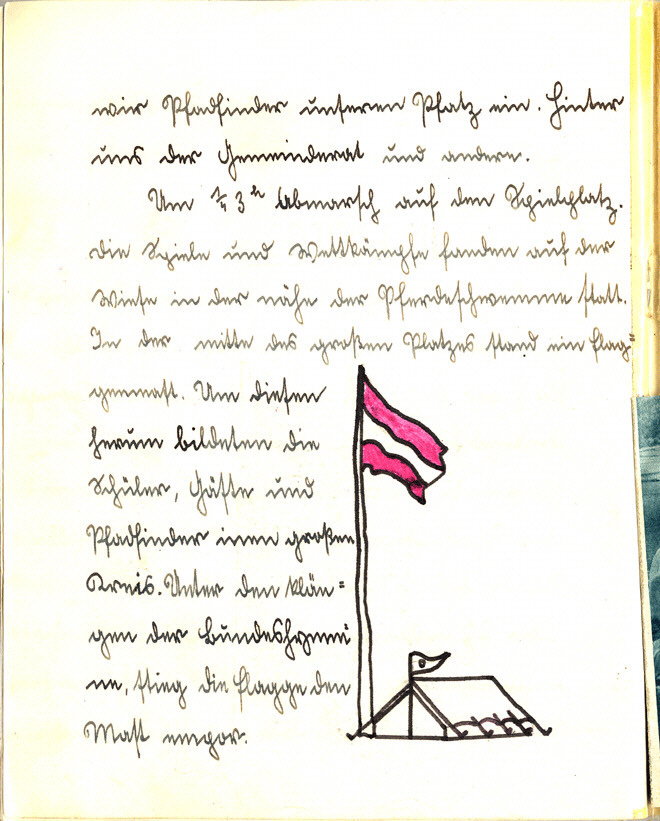 wir Pfadfinder unseren Platz ein. Hinter
uns der Gemeinderat und andere.
Um ¼ 3ʰ Abmarsch auf den Spielplatz.
Die Spiele und Wettkämpfe fanden auf der
Wiese in der nähe der Pferdeschwemme statt.
In der mitte des großen Platzes stand ein flag=
genmast. Um diesen
herum bildeten die
Schüler, Gäste und
Pfadfinder einen großen
Kreis. Unter den klän=
gen der Bundeshym
ne, stieg die flagge den
Mast empor.